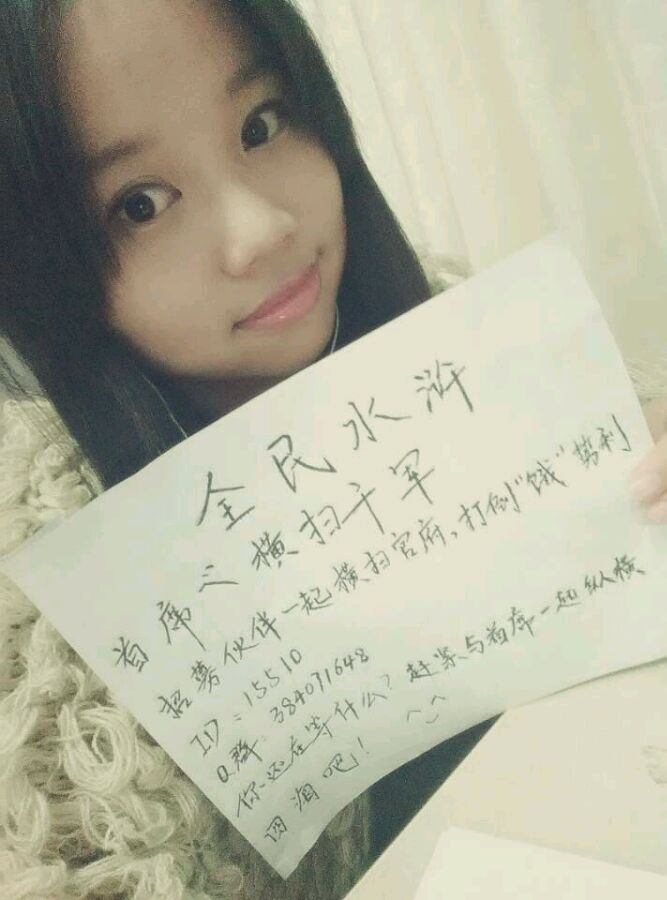 全民水浒
首席三横扫千军
招募伙伴一起横扫官府,打倒"饿"势利
ID=15510
Q群:384071648
你还在等什么?赶紧与首席一起纵横
四海吧! ^_^